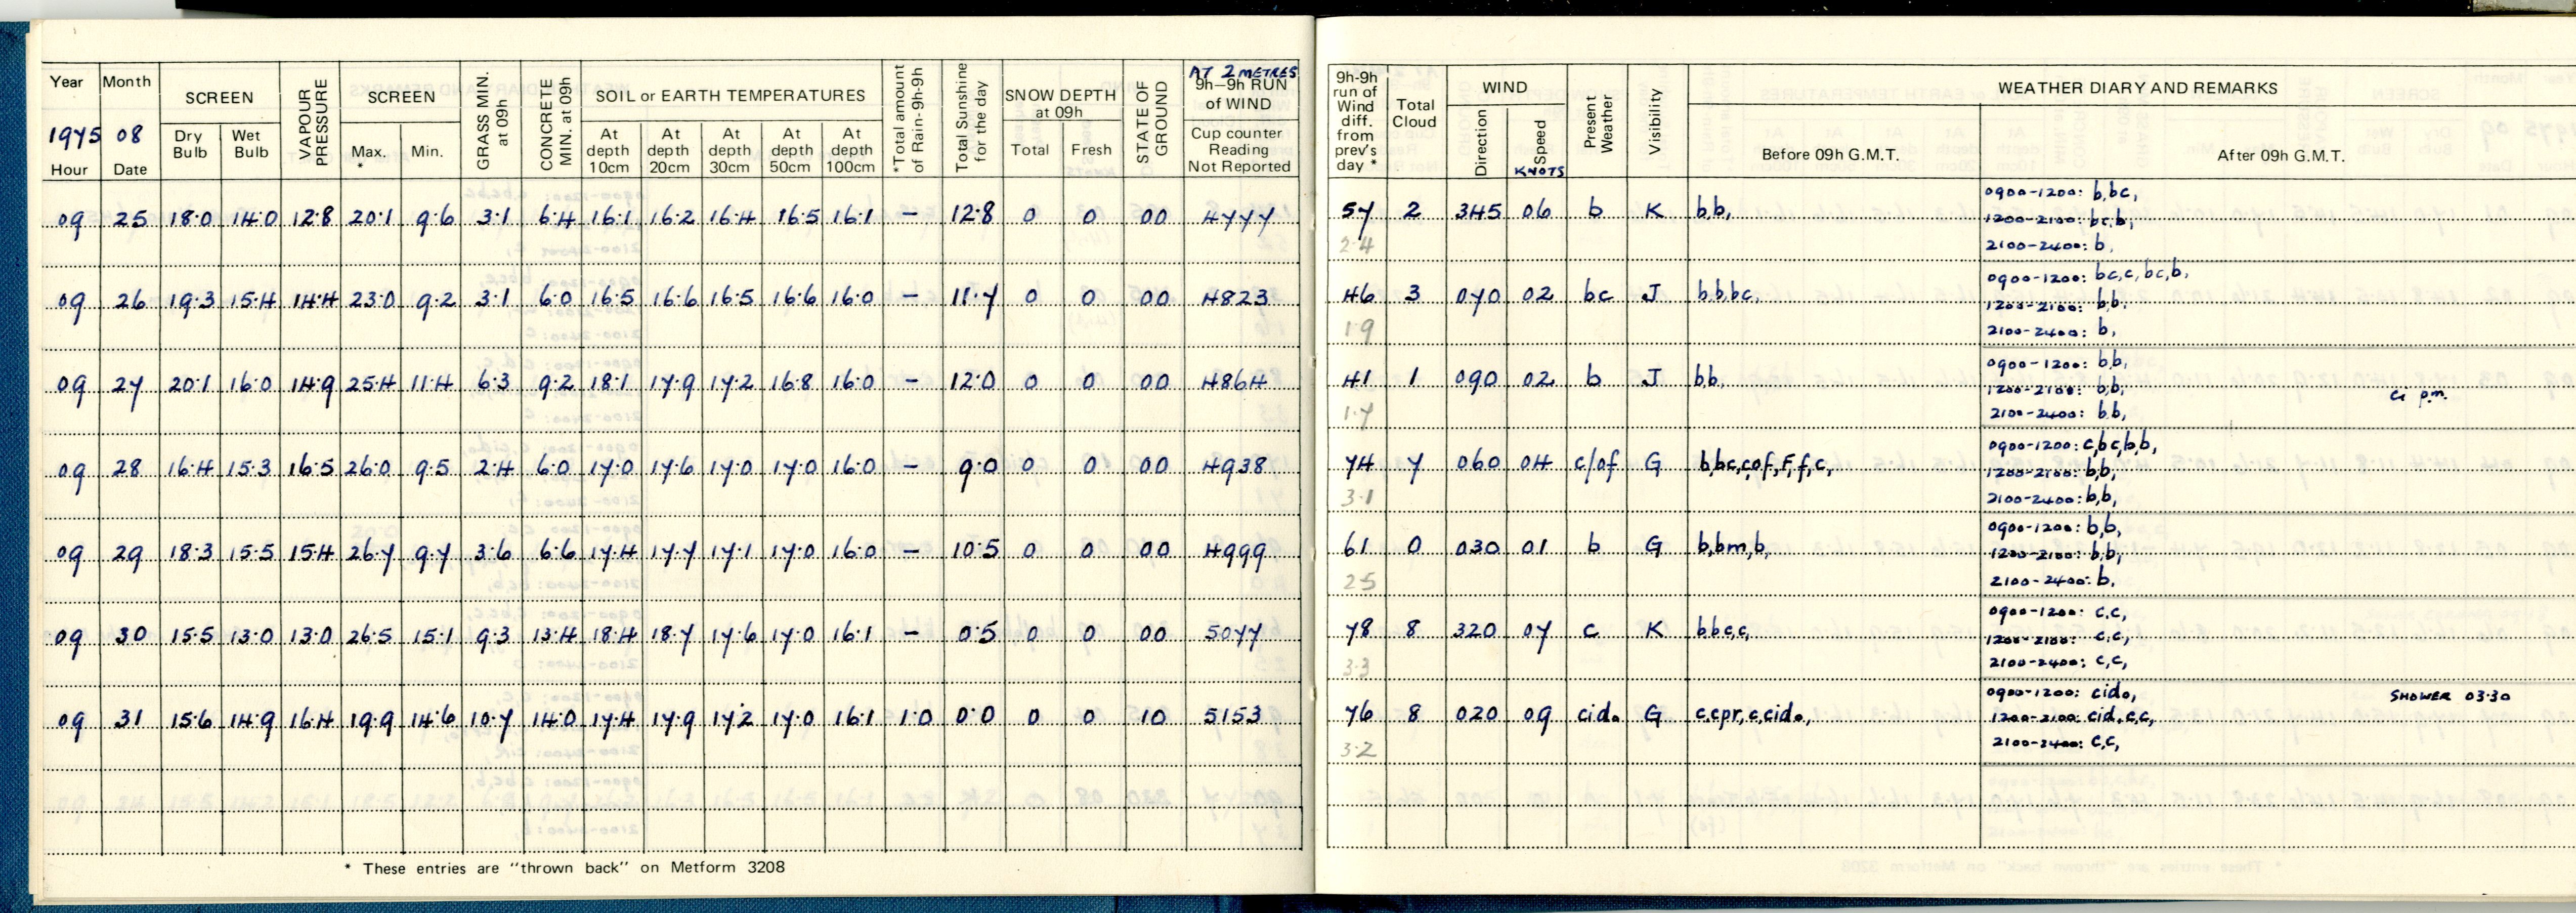 Year Month SCREEN VAPOUR PRESSURE SCREEN GRASS MIN. at 09h CONCRETE MIN. at 09h SOIL or EARTH TEMPERATURES *Total amount of Rain-9h-9h Total Sunshine for the day SNOW DEPTH at 09h STATE OF GROUND AT 2 METRES 9h–9h RUN of WIND
1975 08 Dry Bulb Wet Bulb Max. * Min. At depth 10cm At depth 20cm At depth 30cm At depth 50cm At depth 100cm Total Fresh Cup counter Reading Not Reported
Hour Date
09 25 18.0 14.0 12.8 20.1 9.6 3.1 6.4 16.1 16.2 16.4 16.5 16.1 – 12.8 0 0 00 4777
09 26 19.3 15.4 14.4 23.0 9.2 3.1 6.0 16.5 16.6 16.5 16.6 16.0 – 11.7 0 0 00 4823
09 27 20.1 16.0 14.9 25.4 11.4 6.3 9.2 18.1 17.9 17.2 16.8 16.0 – 12.0 0 0 00 4864
09 28 16.4 15.3 16.5 26.0 9.5 2.4 6.0 17.0 17.6 17.0 17.0 16.0 – 9.0 0 0 00 4938
09 29 18.3 15.5 15.4 26.7 9.7 3.6 6.6 17.4 17.7 17.1 17.0 16.0 – 10.5 0 0 00 4999
09 30 15.5 13.0 13.0 26.5 15.1 9.3 13.4 18.4 18.7 17.6 17.0 16.1 – 0.5 0 0 00 5077
09 31 15.6 14.9 16.4 19.9 14.6 10.7 14.0 17.4 17.9 17.2 17.0 16.1 1.0 0.0 0 0 10 5153
* These entries are "thrown back" on Metform 3208
9h-9h run of Wind diff. from prev's day * Total Cloud WIND Present Weather Visibility WEATHER DIARY AND REMARKS
Direction Speed KNOTS Before 09h G.M.T. After 09h G.M.T.
57 2 345 06 b K b,b, 0900-1200: b,bc,
1200-2100: bc,b,
2.4 2100-2400: b,
46 3 070 02 bc J b,b,bc, 0900-1200: bc,c,bc,b,
1200-2100: b,b,
1.9 2100-2400: b,
41 1 090 02 b J b,b, 0900-1200: b,b,
1200-2100: b,b, Ci p.m.
1.7 2100-2400: b,b,
74 7 060 04 c/of G b,bc,c,of,F,f,c, 0900-1200: c,bc,b,b,
1200-2100: b,b,
3.1 2100-2400: b,b,
61 0 030 01 b G b,bm,b, 0900-1200: b,b,
1200-2100: b,b,
2.5 2100-2400: b,
78 8 320 07 c K b,bc,c, 0900-1200: c,c,
1200-2100: c,c,
3.3 2100-2400: c,c,
76 8 020 09 cido G c,cpr,c,cido, 0900-1200: cido, SHOWER 03.30
1200-2100: cido,c,c,
3.2 2100-2400: c,c,